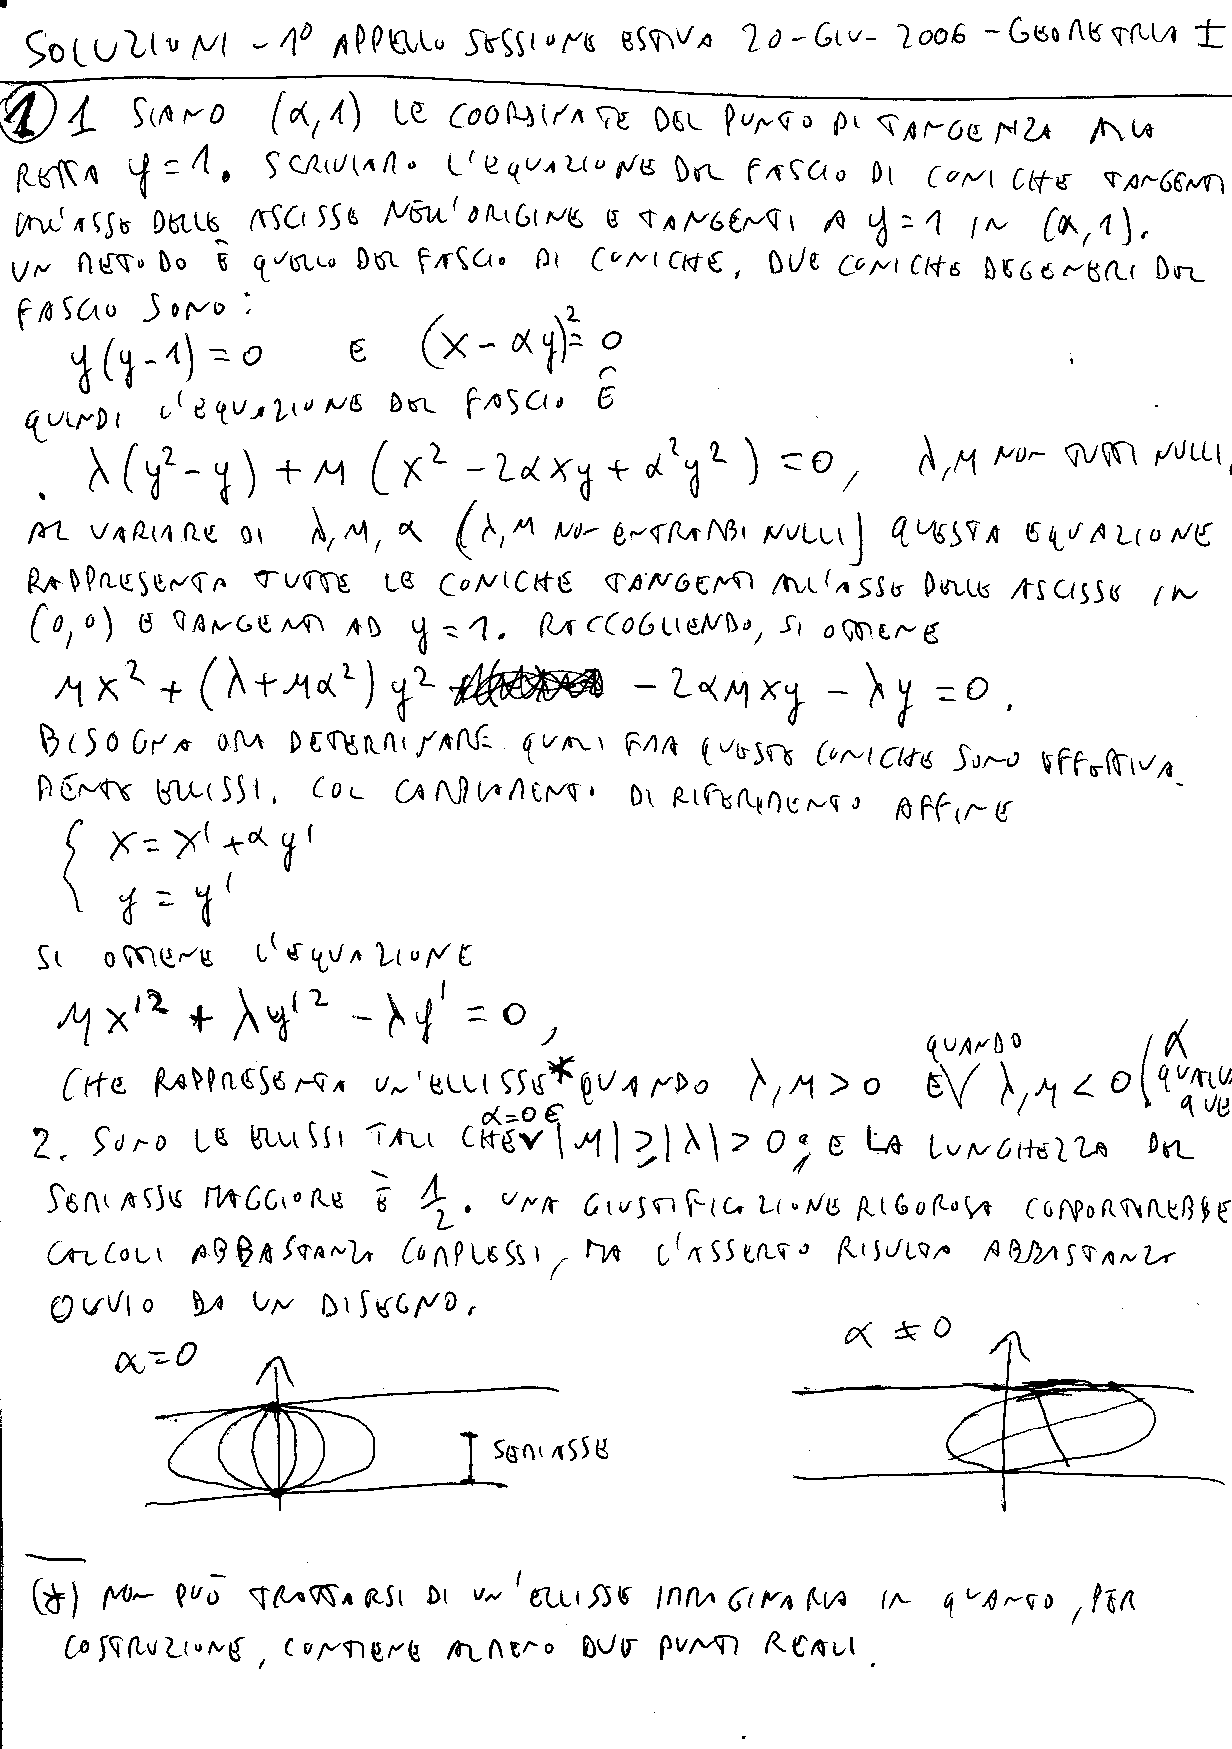 SOLUZIONI - 1° APPELLO SESSIONE ESTIVA 20-GIU-2006 - GEOMETRIA I
① 1 SIANO (α,1) LE COORDINATE DEL PUNTO DI TANGENZA ALLA
RETTA y=1. SCRIVIAMO L'EQUAZIONE DEL FASCIO DI CONICHE TANGENTI
ALL'ASSE DELLE ASCISSE NELL'ORIGINE E TANGENTI A y=1 IN (α,1).
UN METODO È QUELLO DEL FASCIO DI CONICHE, DUE CONICHE DEGENERI DEL
FASCIO SONO:
y(y-1)=0 E (x-αy)²=0
QUINDI L'EQUAZIONE DEL FASCIO È
λ(y²-y)+μ(x²-2αxy+α²y²)=0, λ,μ NON TUTTI NULLI,
AL VARIARE DI λ,μ,α (λ,μ NON ENTRAMBI NULLI) QUESTA EQUAZIONE
RAPPRESENTA TUTTE LE CONICHE TANGENTI ALL'ASSE DELLE ASCISSE IN
(0,0) E TANGENTI AD y=1. RACCOGLIENDO, SI OTTIENE
μx²+(λ+μα²)y² -2αμxy-λy=0.
BISOGNA ORA DETERMINARE QUALI FRA QUESTE CONICHE SONO EFFETTIVA-
MENTE ELLISSI. COL CAMBIAMENTO DI RIFERIMENTO AFFINE
{ x=x'+αy'
y=y'
SI OTTIENE L'EQUAZIONE
μx'²+λy'²-λy'=0,
CHE RAPPRESENTA UN'ELLISSE* QUANDO λ,μ>0 E QUANDO λ,μ<0 (α QUALUNQUE
2. SONO LE ELLISSI TALI CHE α=0 E |μ|≥|λ|>0; E LA LUNGHEZZA DEL
SEMIASSE MAGGIORE È 1/2. UNA GIUSTIFICAZIONE RIGOROSA COMPORTEREBBE
CALCOLI ABBASTANZA COMPLESSI, MA L'ASSERTO RISULTA ABBASTANZA
OVVIO DA UN DISEGNO.
α=0
α≠0
SEMIASSE
(*) NON PUÒ TRATTARSI DI UN'ELLISSE IMMAGINARIA IN QUANTO, PER
COSTRUZIONE, CONTIENE ALMENO DUE PUNTI REALI.